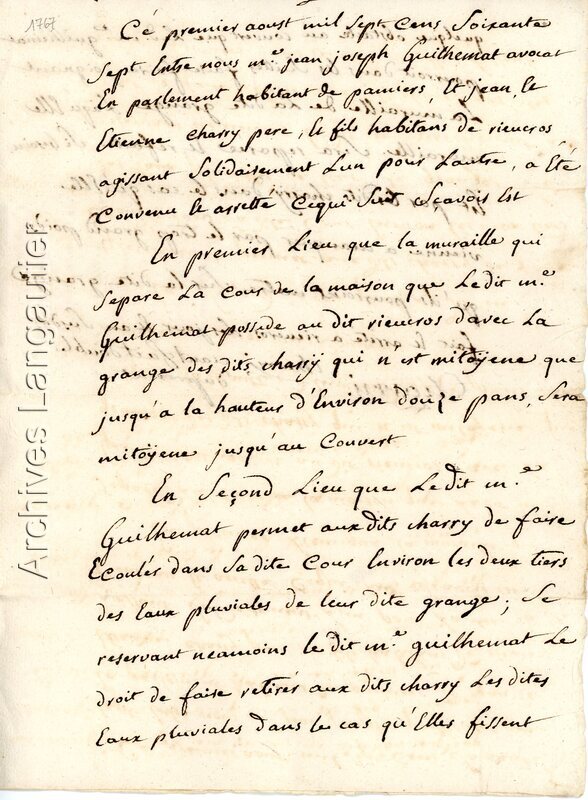 1767
Ce premier aoust mil sept cens soixante
sept Entre nous m.e jean joseph Guilhemat avocat
En parlement habitant de pamiers, Et jean, Et
Etienne charry pere, Et fils habitans de rieucros
agissant Solidairement Lun pour Lautre, a Eté
Convenu Et arretté Cequi Suit Scavoir Est
En premier Lieu que la muraille qui
Separe La Cour de la maison que Ledit m.e
Guilhemat posside au dit rieucros davec La
grange des dits charry qui n'est mitoyene que
jusqu'a la hauteur d'Environ douze pans, Sera
mitoyene jusqu'au Couvert
En Seçond Lieu que Ledit m.e
Guilhemat permet aux dits charry de faire
Ecoulér dans Sa dite Cour Environ les deux tiers
des Eaux pluviales de leur dite grange; Se
reservant neamoins le dit m.e guilhemat Le
droit de faire retirér aux dits charry Les dites
Eaux pluviales dans le cas qu'Elles fissent
Archives Langautier